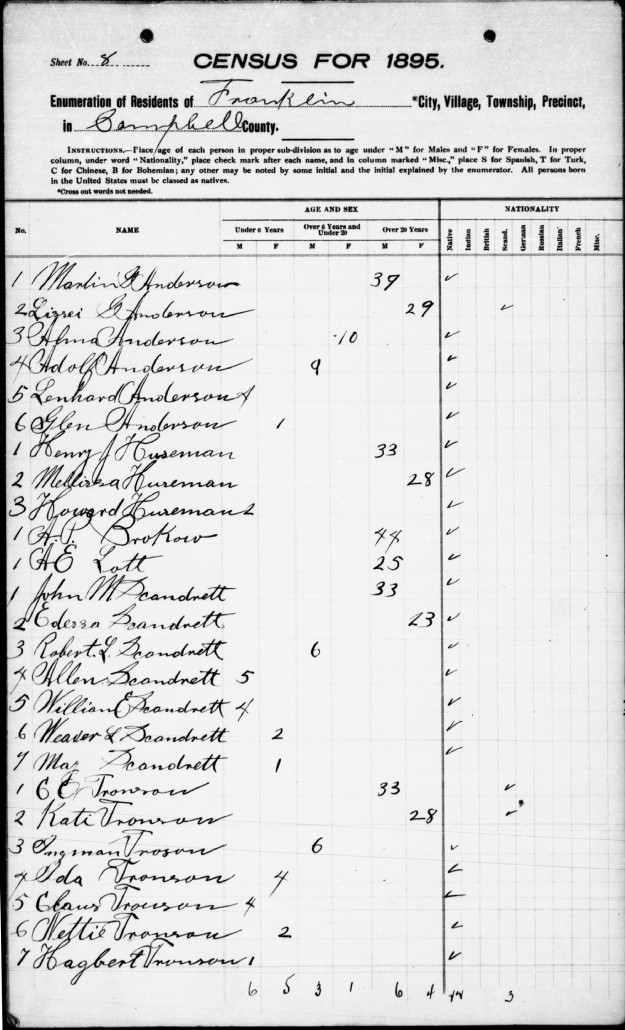 Sheet No. 8
CENSUS FOR 1895.
Enumeration of Residents of Franklin *City, Village, Township, Precinct,
in Campbell County.
INSTRUCTIONS.—Place age of each person in proper sub-division as to age under "M" for Males and "F" for Females. In proper
column, under word "Nationality," place check mark after each name, and in column marked "Misc.," place S for Spanish, T for Turk,
C for Chinese, B for Bohemian; any other may be noted by some initial and the initial explained by the enumerator. All persons born
in the United States must be classed as natives.
*Cross out words not needed.
AGE AND SEX NATIONALITY
No. NAME Under 6 Years Over 6 Years and Under 20 Over 20 Years Native Indian British Scand. German Russian Italian French Misc.
M F M F M F
1 Martin Anderson 39 ✓
2 Lizzei G Anderson 29 ✓
3 Alma Anderson 10 ✓
4 Adolf Anderson 9 ✓
5 Lenhard Anderson 4 ✓
6 Glen Anderson 1 ✓
1 Henry J Huseman 33 ✓
2 Mellissa Huseman 28 ✓
3 Howard Huseman 2 ✓
1 A. P. Brokow 44 ✓
1 A E Lott 25 ✓
1 John M Scandrett 33 ✓
2 Edessa Scandrett 23 ✓
3 Robert. L. Scandrett 6 ✓
4 Allen Scandrett 5 ✓
5 William E Scandrett 4 ✓
6 Weaver L Scandrett 2 ✓
7 May Scandrett 1 ✓
1 C E Tronson 33 ✓
2 Kati Tronson 28 ✓
3 Ingman Troson 6 ✓
4 Ida Tronson 4 ✓
5 Claus Tronson 4 ✓
6 Nettie Tronson 2 ✓
7 Hagbert Tronson 1 ✓
6 5 3 1 6 4 3